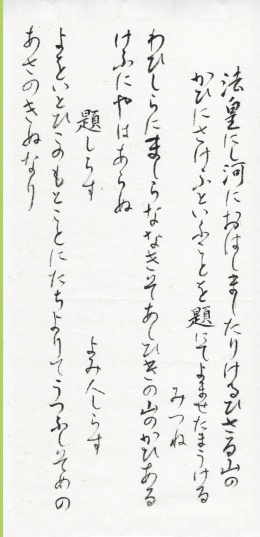 法皇にし河におはしましたりけるひさる山の
かひにさけふといふことを題にてよませたまうける
みつね
わひしらにましらななきそあしひきの山のかひある
けふにやはあらぬ
題しらす
よみ人しらす
よをいとひこのもとことにたちよりてうつふしそめの
あさのきぬなり